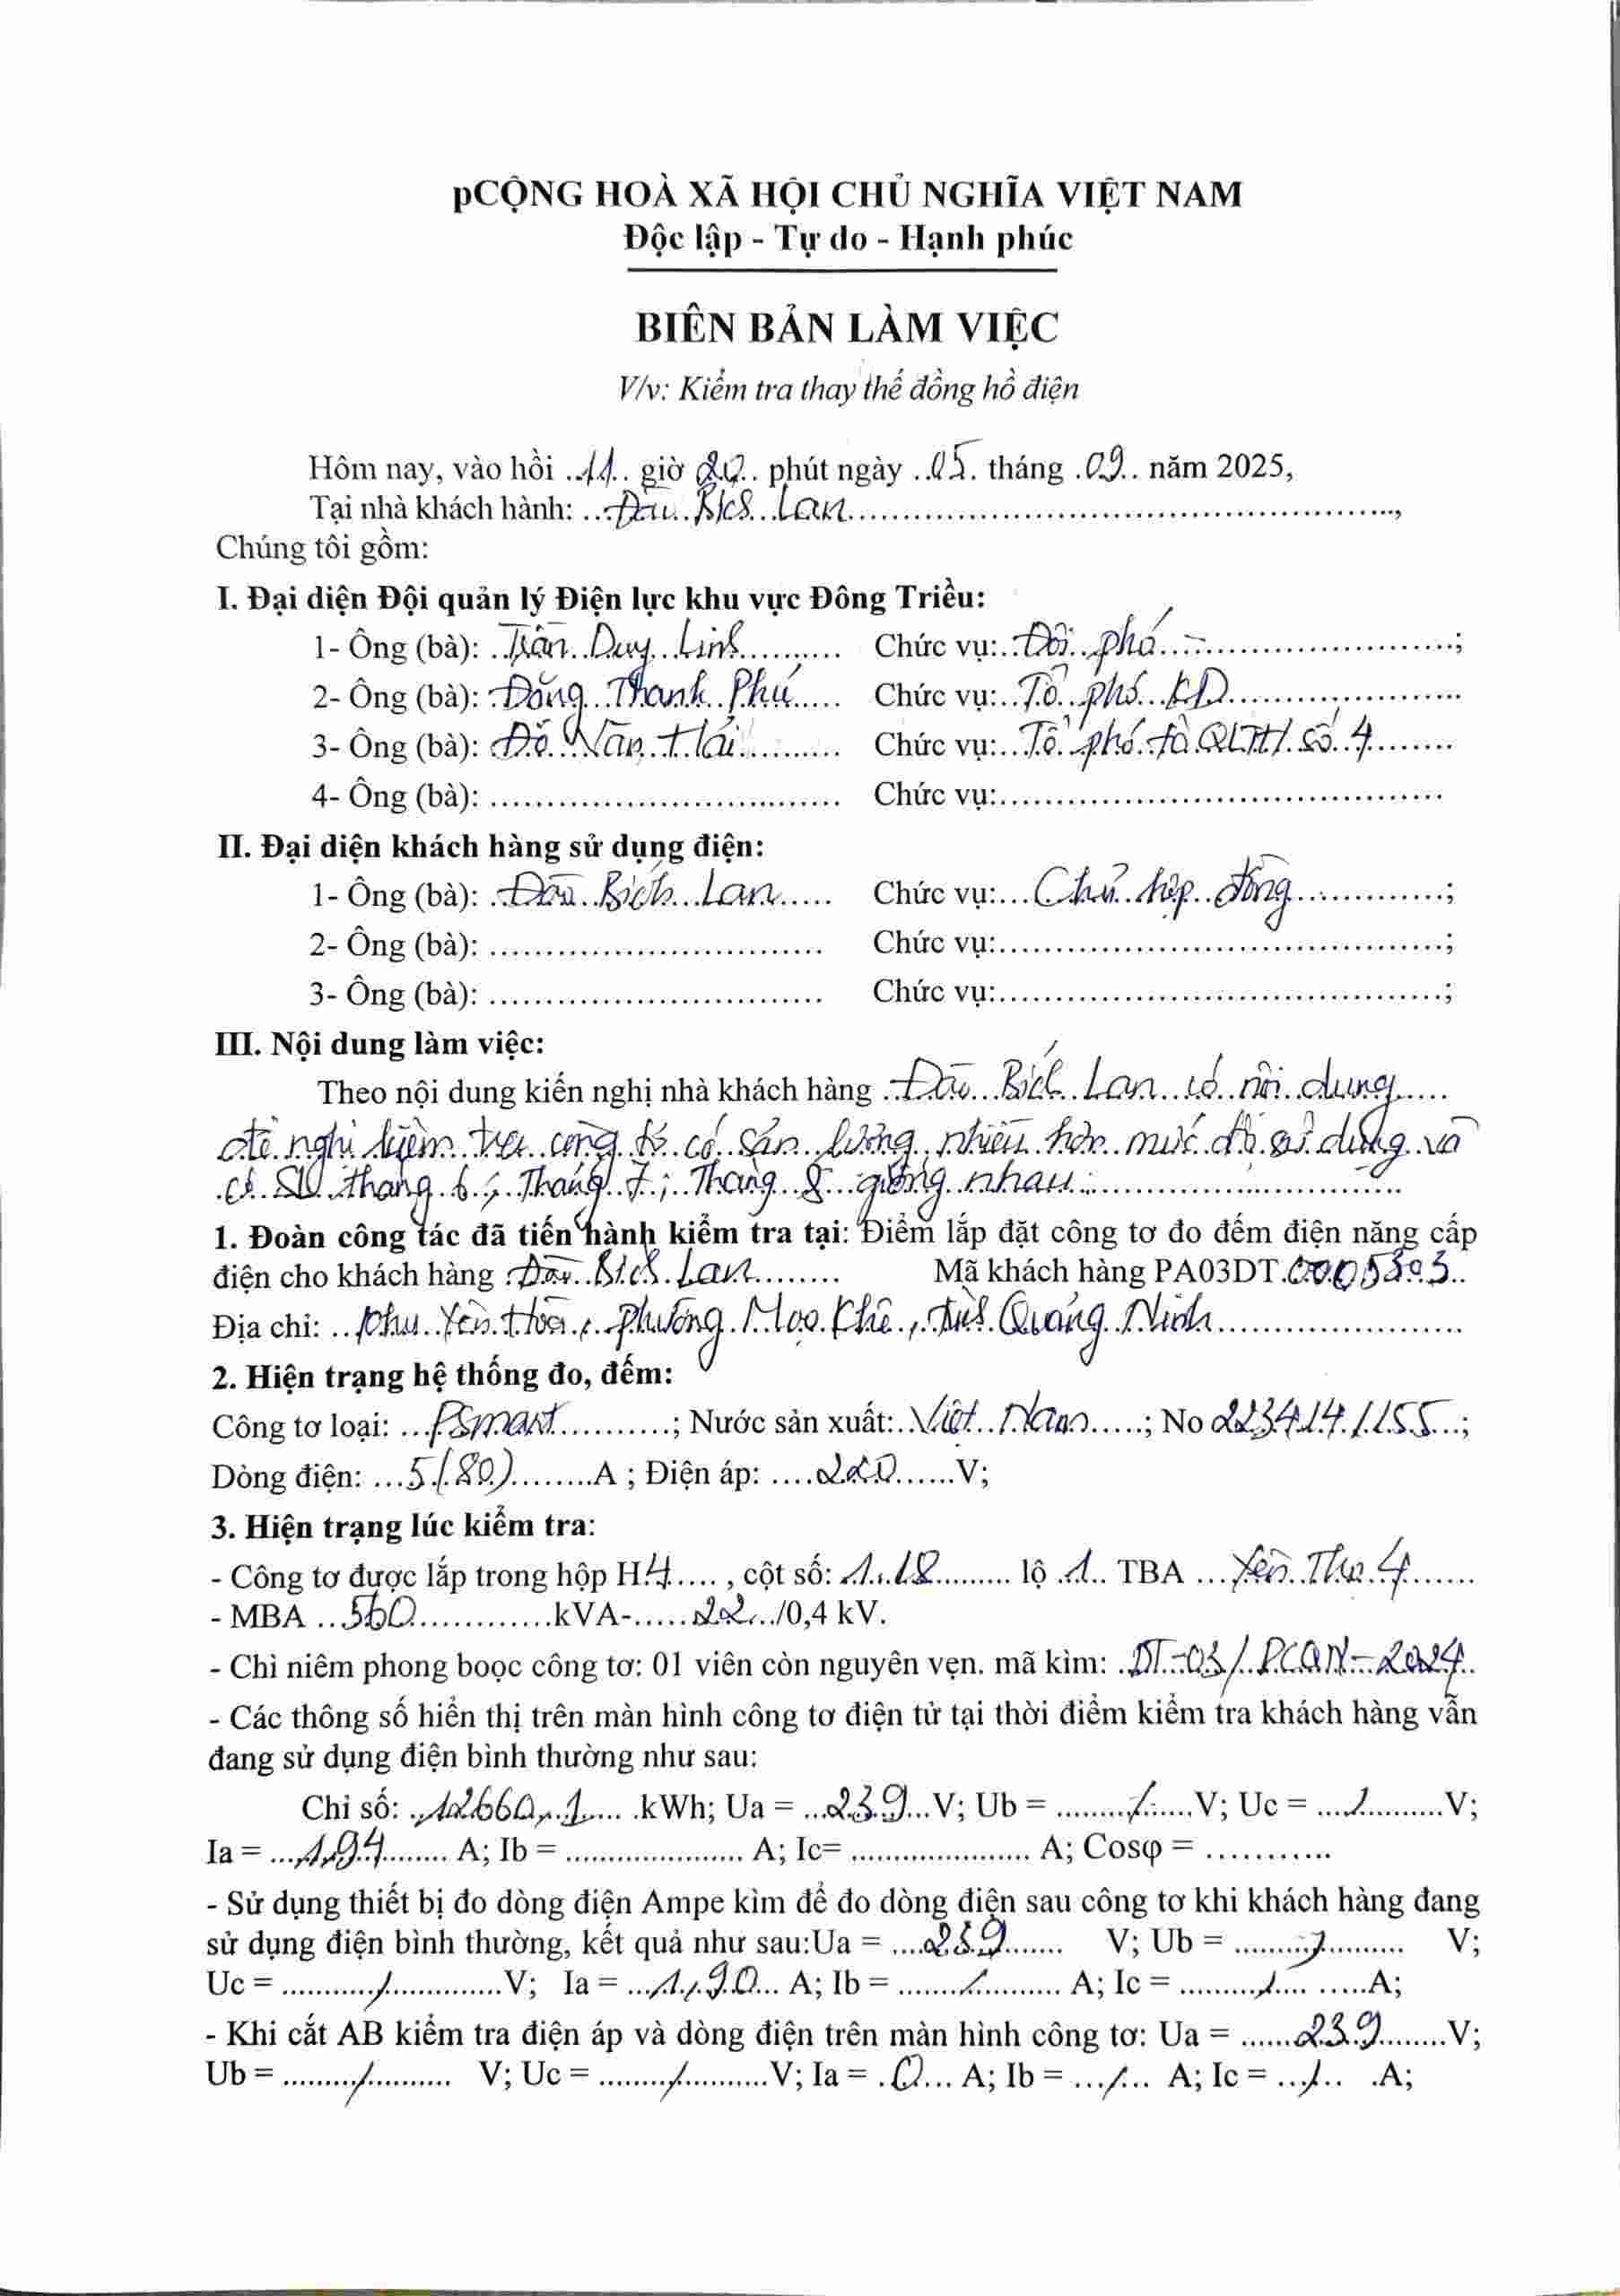 pCỘNG HOÀ XÃ HỘI CHỦ NGHĨA VIỆT NAM
Độc lập - Tự do - Hạnh phúc
BIÊN BẢN LÀM VIỆC
V/v: Kiểm tra thay thế đồng hồ điện
Hôm nay, vào hồi ..11.. giờ 20.. phút ngày ..05. tháng .09.. năm 2025,
Tại nhà khách hành: ...Đào Bích Lan...,
Chúng tôi gồm:
I. Đại diện Đội quản lý Điện lực khu vực Đông Triều:
1- Ông (bà): Trần Duy Linh Chức vụ: Đội phó ;
2- Ông (bà): Đặng Thanh Phú Chức vụ: Tổ phó KD
3- Ông (bà): Đỗ Văn Hải Chức vụ: Tổ phó tổ QLTH số 4
4- Ông (bà): ........ Chức vụ:........
II. Đại diện khách hàng sử dụng điện:
1- Ông (bà): Đào Bích Lan Chức vụ: Chủ hợp đồng ;
2- Ông (bà): ........ Chức vụ:........;
3- Ông (bà): ........ Chức vụ:........;
III. Nội dung làm việc:
Theo nội dung kiến nghị nhà khách hàng Đào Bích Lan có nội dung
đề nghị kiểm tra công tơ có sản lượng nhiều hơn mức độ sử dụng và
có SL tháng 6 ; Tháng 7 ; Tháng 8 giống nhau
1. Đoàn công tác đã tiến hành kiểm tra tại: Điểm lắp đặt công tơ đo đếm điện năng cấp
điện cho khách hàng Đào Bích Lan Mã khách hàng PA03DT.0005303..
Địa chỉ: khu Yên Hòa, phường Mạo Khê, tỉnh Quảng Ninh
2. Hiện trạng hệ thống đo, đếm:
Công tơ loại: PSmart ; Nước sản xuất: Việt Nam ; No 2234141155 ;
Dòng điện: ...5(80)...A ; Điện áp: ....220......V;
3. Hiện trạng lúc kiểm tra:
- Công tơ được lắp trong hộp H.4...., cột số: 1.18 lộ .1.. TBA ... Yên Thọ 4
- MBA ..560..kVA-.....22.../0,4 kV.
- Chì niêm phong booc công tơ: 01 viên còn nguyên vẹn. mã kìm: .DT-03/PCQN-2024.
- Các thông số hiển thị trên màn hình công tơ điện tử tại thời điểm kiểm tra khách hàng vẫn
đang sử dụng điện bình thường như sau:
Chỉ số: 12660,1 .kWh; Ua = ...239...V; Ub = ......../......V; Uc = ..../..........V;
Ia = ...1,94........ A; Ib = .................... A; Ic= .................... A; Cosφ = ...........
- Sử dụng thiết bị đo dòng điện Ampe kìm để đo dòng điện sau công tơ khi khách hàng đang
sử dụng điện bình thường, kết quả như sau:Ua = ....239....... V; Ub = ......../......... V;
Uc = ........../.............V; Ia = ...1,90... A; Ib = ......./.......... A; Ic = ........./.... ......A;
- Khi cắt AB kiểm tra điện áp và dòng điện trên màn hình công tơ: Ua = ......239........V;
Ub = ......../.......... V; Uc = ......../..........V; Ia = .0... A; Ib = .../... A; Ic = .../.. .A;